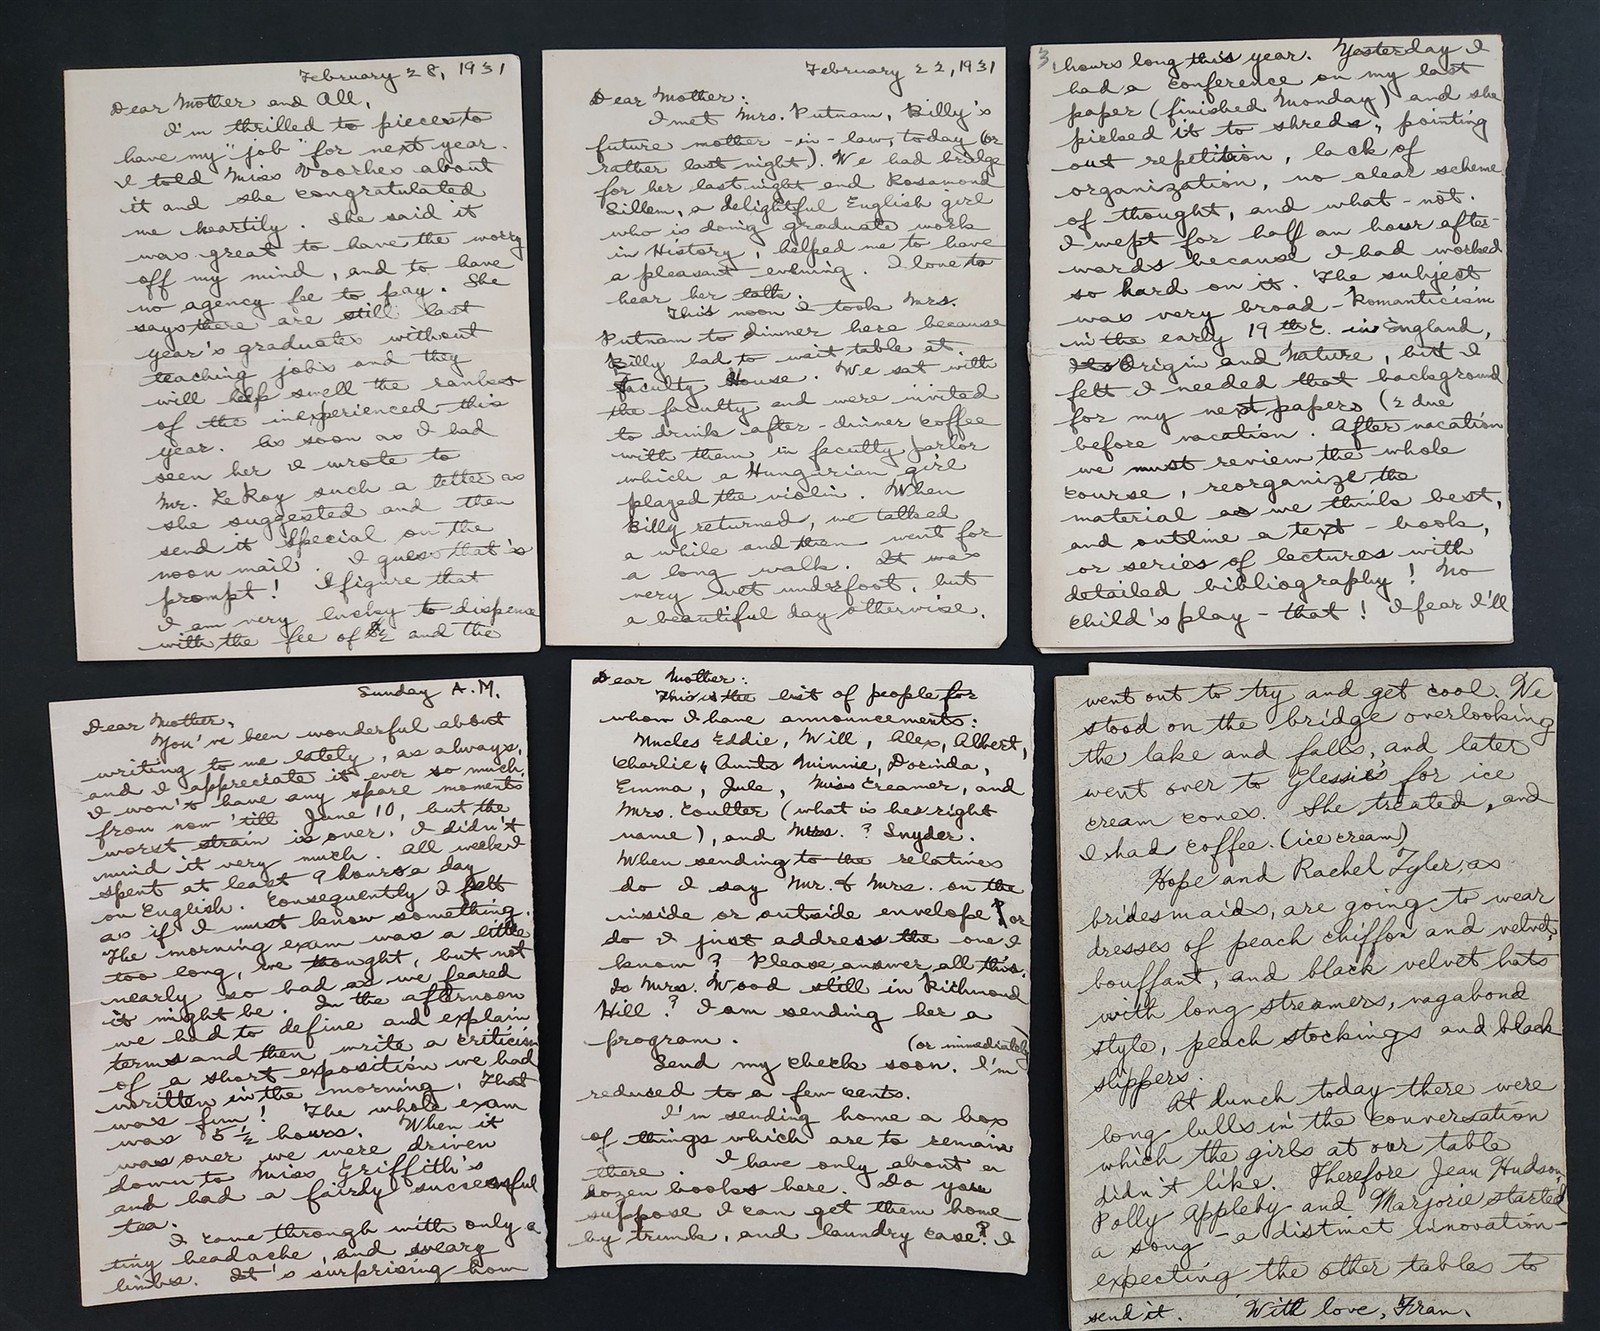 February 28, 1931
Dear Mother and All,
I'm thrilled to pieces to
have my "job" for next year.
I told Miss Voorhes about
it and she congratulated
me heartily. She said it
was great to have the worry
off my mind, and to have
no agency fee to pay. She
says there are still last
year's graduates without
teaching jobs and they
will help swell the ranks
of the inexperienced this
year. As soon as I had
seen her I wrote to
Mr. LeRoy such a letter as
she suggested and then
send it special on the
noon mail. I guess that's
prompt! I figure that
I am very lucky to dispense
with the fee of and the
February 22, 1931
Dear Mother:
I met Mrs. Putnam, Billy's
future mother-in-law, today (or
rather last night). We had bridge
for her last night and Rosamond
Sillem, a delightful English girl
who is doing graduate work
in History, helped me to have
a pleasant evening. I love to
hear her talk.
This noon I took Mrs.
Putnam to dinner here because
Billy had to wait table at
Faculty House. We sat with
the faculty and were invited
to drink after-dinner coffee
with them in faculty parlor
which a Hungarian girl
played the violin. When
Billy returned, we talked
a while and then went for
a long walk. It was
very wet underfoot, but
a beautiful day otherwise.
3.
hours long this year. Yesterday I
had a conference on my last
paper (finished Monday) and she
picked it to shreds, pointing
out repetition, lack of
organization, no clear scheme
of thought, and what-not.
I wept for half an hour after-
wards because I had worked
so hard on it. The subject
was very broad - Romanticism
in the early 19th C. in England,
Its Origin and Nature, but I
felt I needed that background
for my next papers (2 due
before vacation. After vacation
we must review the whole
course, reorganize the
material as we think best,
and outline a text-book,
or series of lectures with
detailed bibliography! No
child's play - that! I fear I'll
Sunday A.M.
Dear Mother,
You've been wonderful about
writing to me lately, as always,
and I appreciate it ever so much.
I won't have any spare moments
from now 'till June 10, but the
worst strain is over. I didn't
mind it very much. All week I
spent at least 9 hours a day
on English. Consequently I felt
as if I must know something.
The morning exam was a little
too long, we thought, but not
nearly so bad as we feared
it might be. In the afternoon
we had to define and explain
terms and then write a criticism
of a short exposition we had
written in the morning. That
was fun! The whole exam
was 5 1/2 hours. When it
was over we were driven
down to Miss Griffith's
and had a fairly successful
tea.
I came through with only a
tiny headache, and weary
limbs. It's surprising how
Dear Mother:
This is the list of people for
whom I have announcements:
Uncles Eddie, Will, Alex, Albert,
Charlie, Aunts Minnie, Dorinda,
Emma, Jule, Miss Creamer, and
Mrs. Coulter (what is her right
name), and Mrs. ? Snyder.
When sending to the relatives
do I say Mr. & Mrs. on the
inside or outside envelope? or
do I just address the one I
know? Please answer all this.
Is Mrs. Wood still in Richmond
Hill? I am sending her a
program. (or immediately)
Send my check soon. I'm
reduced to a few cents.
I'm sending home a box
of things which are to remain
there. I have only about a
dozen books here. Do you
suppose I can get them home
by trunk, and laundry case? I
went out to try and get cool. We
stood on the bridge overlooking
the lake and falls, and later
went over to Glessie's for ice
cream cones. She treated, and
I had coffee. (ice cream)
Hope and Rachel Tyler, as
bridesmaids, are going to wear
dresses of peach chiffon and velvet,
bouffant, and black velvet hats
with long streamers, vagabond
style, peach stockings and black
slippers.
At lunch today there were
long lulls in the conversation
which the girls at our table
didn't like. Therefore Jean Hudson,
Polly Appleby and Marjorie started
a song - a distinct innovation -
expecting the other tables to
send it. With love, Fran.